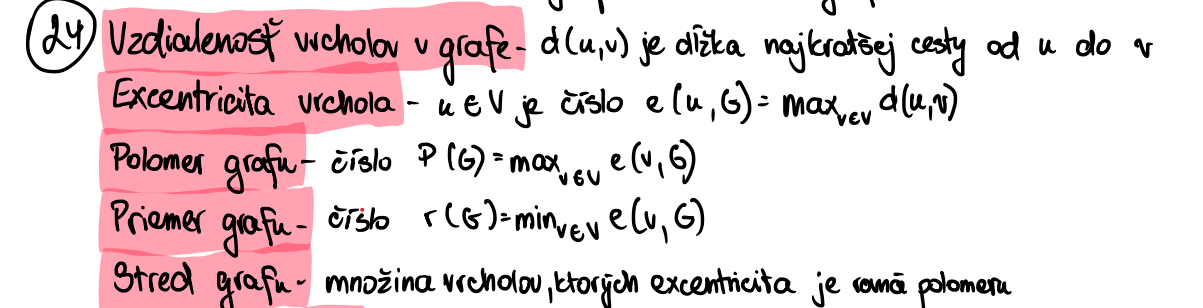 24 Vzdialenosť vrcholov v grafe - d(u,v) je dĺžka najkratšej cesty od u do v
Excentricita vrchola - u ∈ V je číslo e(u,G) = max_{v∈V} d(u,v)
Polomer grafu - číslo P(G) = max_{v∈V} e(v,G)
Priemer grafu - číslo r(G) = min_{v∈V} e(v,G)
Stred grafu - množina vrcholov, ktorých excentricita je rovná polomeru